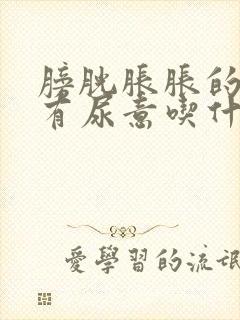 膀胱脹脹的
有尿意喫什
愛學習的流氓